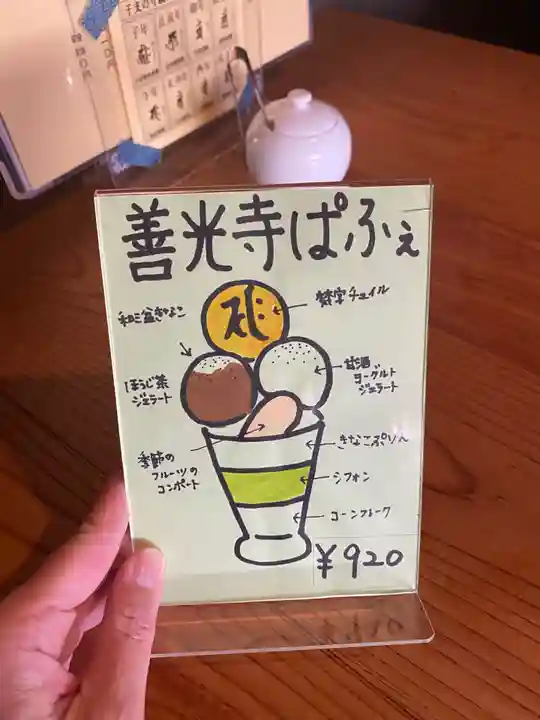 善光寺ぱふぇ
和三盆きなこ
梵字チュイル
ほうじ茶
ジェラート
甘酒
ヨーグルト
ジェラート
季節の
フルーツの
コンポート
きなこぷりん
シフォン
コーンフレーク
¥920